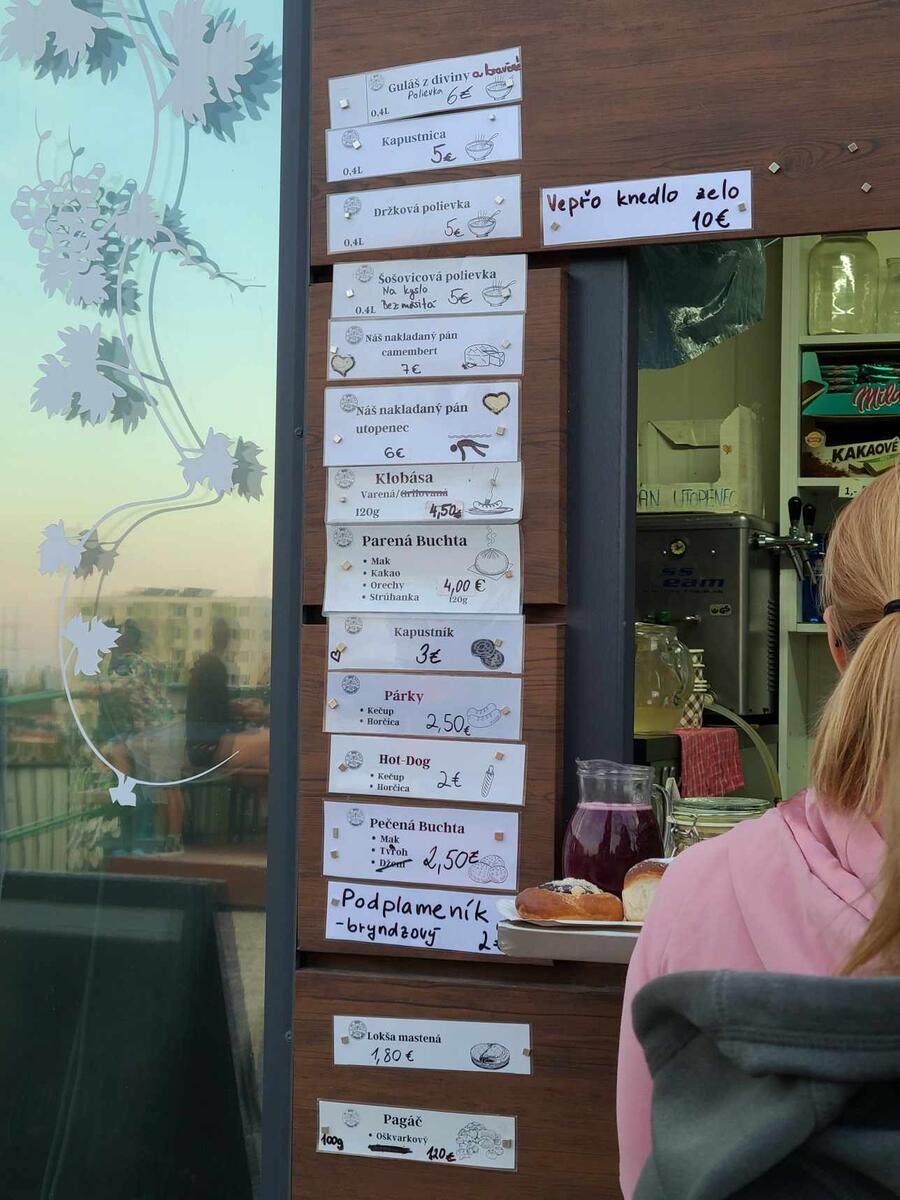 Guláš z diviny a bravčové
Polievka 6€
0,4L
Kapustnica
5€
0,4L
Držková polievka
5€
0,4L
Vepřo knedlo zelo
10€
Šošovicová polievka
Na kyslo
Bez mäsitá 5€
0.4L
Náš nakladaný pán
camembert
7€
Náš nakladaný pán
utopenec
6€
Klobása
Varená/Grilovaná
120g 4,50€
Parená Buchta
• Mak
• Kakao
• Orechy
• Strúhanka
4,00 €
120g
Kapustník
3€
Párky
• Kečup
• Horčica 2,50€
Hot-Dog
• Kečup
• Horčica 2€
Pečená Buchta
• Mak
• Tvroh
• Džem 2,50€
Podplameník
-bryndzový 2
Lokša mastená
1,80 €
Pagáč
• Oškvarkový
100g 120€
Mila
KAKAOVÉ
1,-
PÁN UTOPENEC